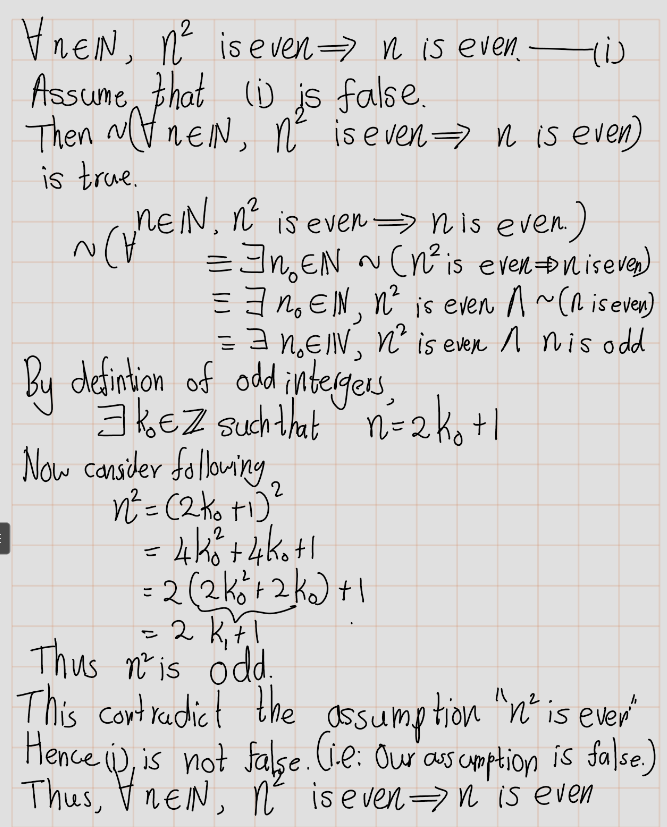 ∀ n∈ℕ, n² is even ⟹ n is even. —— (i)
Assume that (i) is false.
Then ~(∀ n∈ℕ, n² is even ⟹ n is even)
is true.
~(∀ n∈ℕ, n² is even ⟹ n is even.)
≡ ∃n₀∈ℕ ~(n² is even ⟹ n is even)
≡ ∃ n₀∈ℕ, n² is even ∧ ~(n is even)
≡ ∃ n₀∈ℕ, n² is even ∧ n is odd
By defintion of odd intergers,
∃ k₀∈ℤ such that n = 2k₀ + 1
Now consider following
n² = (2k₀ + 1)²
= 4k₀² + 4k₀ + 1
= 2(2k₀² + 2k₀) + 1
= 2 k₁ + 1
Thus n² is odd.
This contradict the assumption "n² is even"
Hence (i) is not false. (i.e: Our assumption is false.)
Thus, ∀ n∈ℕ, n² is even ⟹ n is even